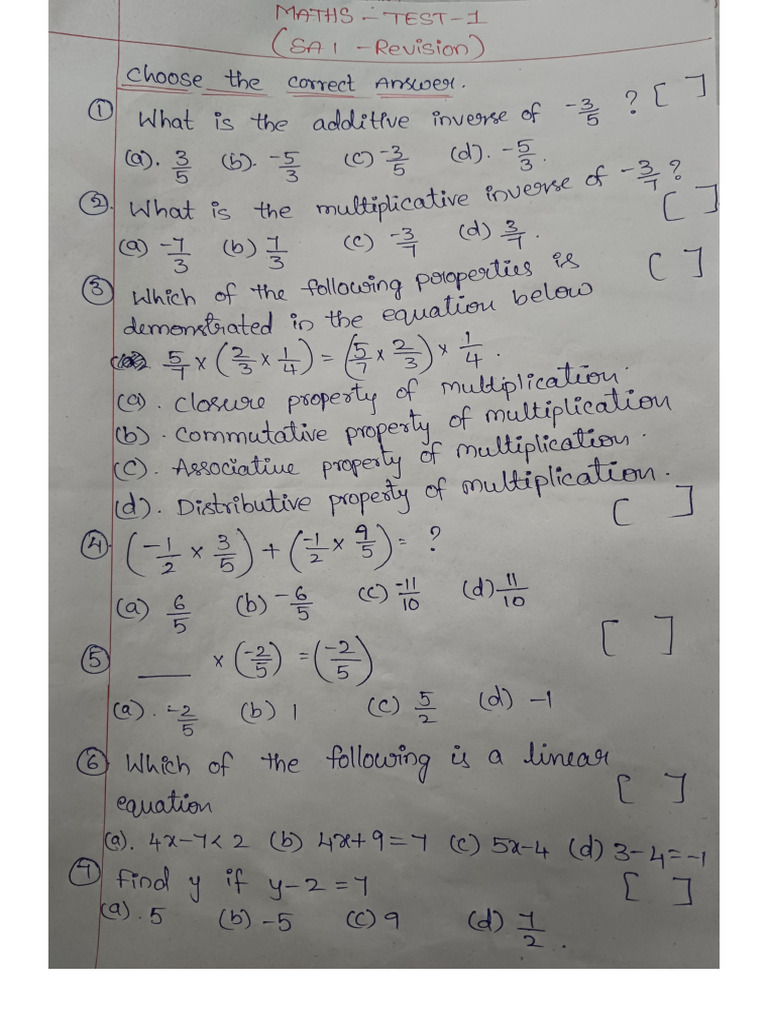 MATHS - TEST-1
(SA1 - Revision)
Choose the correct Answer.
① What is the additive inverse of -3/5 ? [ ]
(a). 3/5 (b). -5/3 (c) -3/5 (d). -5/3.
②. What is the multiplicative inverse of -3/7 ? [ ]
(a) -7/3 (b) 7/3 (c) -3/7 (d) 3/7.
③ Which of the following properties is [ ]
demonstrated in the equation below
5/7 × (2/3 × 1/4) = (5/7 × 2/3) × 1/4.
(a). Closure property of multiplication.
(b). Commutative property of multiplication
(c). Associative property of multiplication.
(d). Distributive property of multiplication.
④. (-1/2 × 3/5) + (-1/2 × 9/5) = ? [ ]
(a) 6/5 (b) -6/5 (c) -11/10 (d) 11/10
⑤ ___ × (-2/5) = (-2/5) [ ]
(a). -2/5 (b) 1 (c) 5/2 (d) -1
⑥ Which of the following is a linear
equation [ ]
(a). 4x-7<2 (b) 4x+9=7 (c) 5x-4 (d) 3-4=-1
⑦ Find y if y-2=7 [ ]
(a). 5 (b) -5 (c) 9 (d) 7/2.